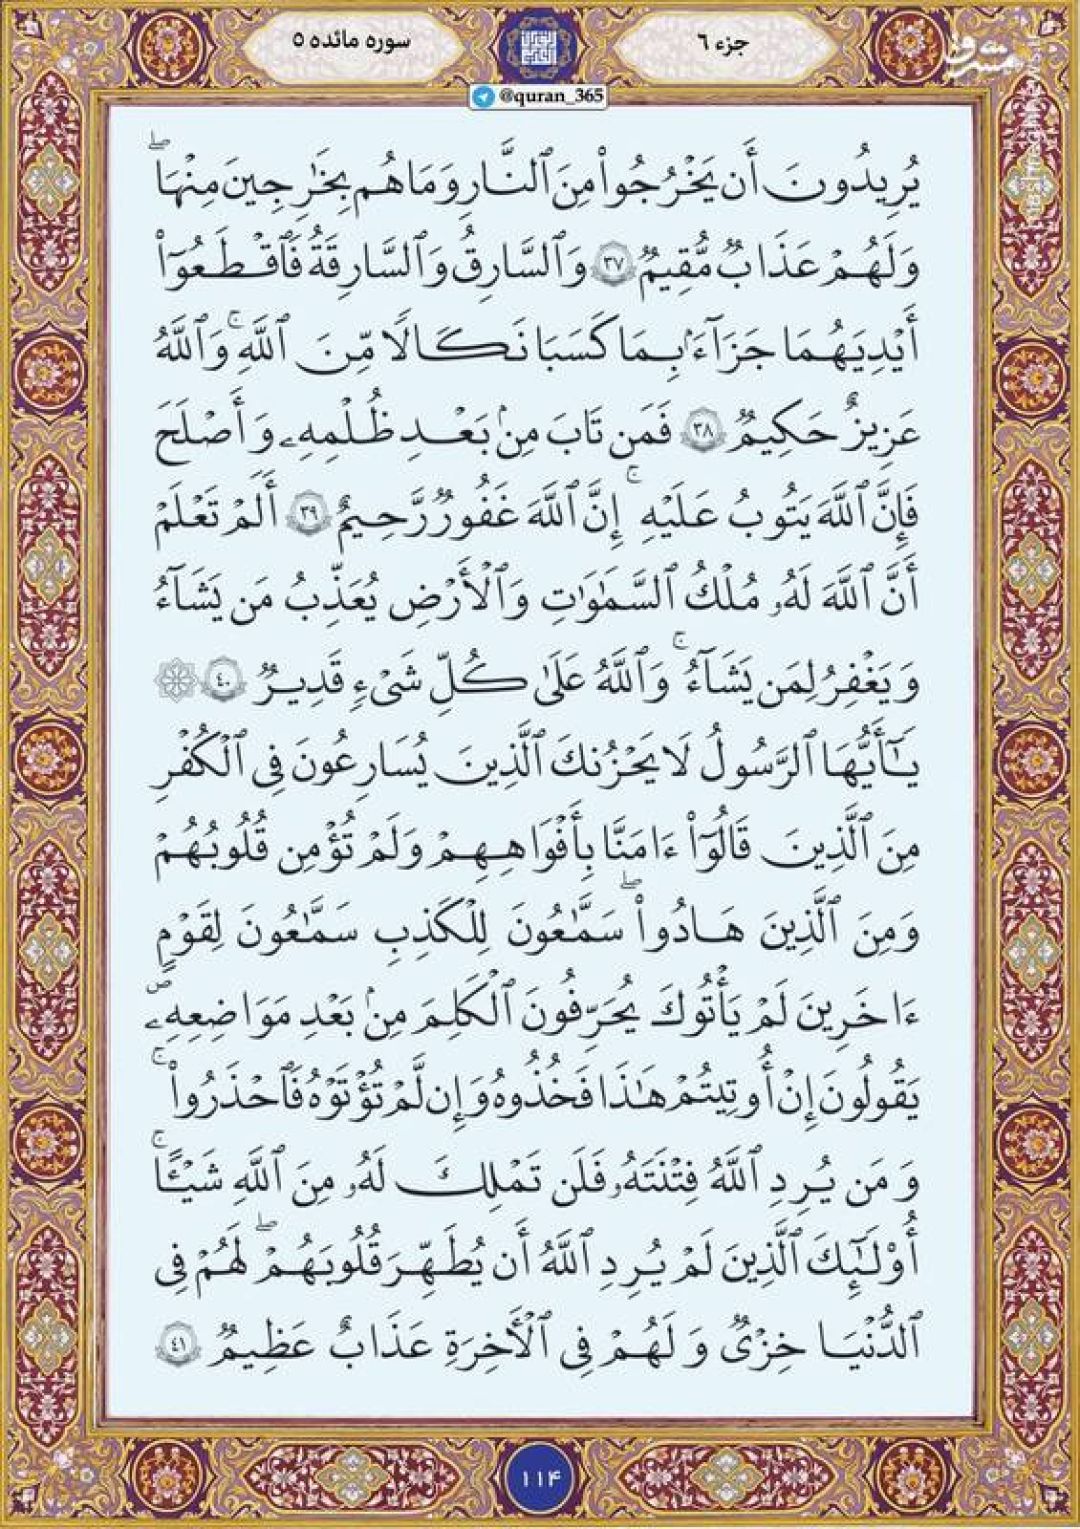 جزء ۶
سوره مائده ۵
@quran_365
يُرِيدُونَ أَن يَخْرُجُوا۟ مِنَ ٱلنَّارِ وَمَا هُم بِخَٰرِجِينَ مِنْهَا ۖ
وَلَهُمْ عَذَابٌ مُّقِيمٌ ﴿٣٧﴾ وَٱلسَّارِقُ وَٱلسَّارِقَةُ فَٱقْطَعُوٓا۟
أَيْدِيَهُمَا جَزَآءًۢ بِمَا كَسَبَا نَكَٰلًا مِّنَ ٱللَّهِ ۚ وَٱللَّهُ
عَزِيزٌ حَكِيمٌ ﴿٣٨﴾ فَمَن تَابَ مِنۢ بَعْدِ ظُلْمِهِۦ وَأَصْلَحَ
فَإِنَّ ٱللَّهَ يَتُوبُ عَلَيْهِ ۚ إِنَّ ٱللَّهَ غَفُورٌ رَّحِيمٌ ﴿٣٩﴾ أَلَمْ تَعْلَمْ
أَنَّ ٱللَّهَ لَهُۥ مُلْكُ ٱلسَّمَٰوَٰتِ وَٱلْأَرْضِ يُعَذِّبُ مَن يَشَآءُ
وَيَغْفِرُ لِمَن يَشَآءُ ۗ وَٱللَّهُ عَلَىٰ كُلِّ شَىْءٍ قَدِيرٌ ﴿٤٠﴾
يَٰٓأَيُّهَا ٱلرَّسُولُ لَا يَحْزُنكَ ٱلَّذِينَ يُسَٰرِعُونَ فِى ٱلْكُفْرِ
مِنَ ٱلَّذِينَ قَالُوٓا۟ ءَامَنَّا بِأَفْوَٰهِهِمْ وَلَمْ تُؤْمِن قُلُوبُهُمْ
وَمِنَ ٱلَّذِينَ هَادُوا۟ ۖ سَمَّٰعُونَ لِلْكَذِبِ سَمَّٰعُونَ لِقَوْمٍ
ءَاخَرِينَ لَمْ يَأْتُوكَ يُحَرِّفُونَ ٱلْكَلِمَ مِنۢ بَعْدِ مَوَاضِعِهِۦ ۖ
يَقُولُونَ إِنْ أُوتِيتُمْ هَٰذَا فَخُذُوهُ وَإِن لَّمْ تُؤْتَوْهُ فَٱحْذَرُوا۟ ۚ
وَمَن يُرِدِ ٱللَّهُ فِتْنَتَهُۥ فَلَن تَمْلِكَ لَهُۥ مِنَ ٱللَّهِ شَيْـًٔا ۚ
أُو۟لَٰٓئِكَ ٱلَّذِينَ لَمْ يُرِدِ ٱللَّهُ أَن يُطَهِّرَ قُلُوبَهُمْ ۖ لَهُمْ فِى
ٱلدُّنْيَا خِزْىٌ وَلَهُمْ فِى ٱلْءَاخِرَةِ عَذَابٌ عَظِيمٌ ﴿٤١﴾
۱۱۴